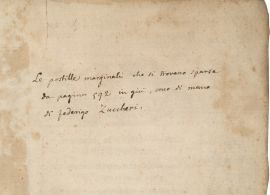 Le postille marginali che si trovano sparse
da pagina 592 in giù, sono di mano
di Federigo Zuccheri.